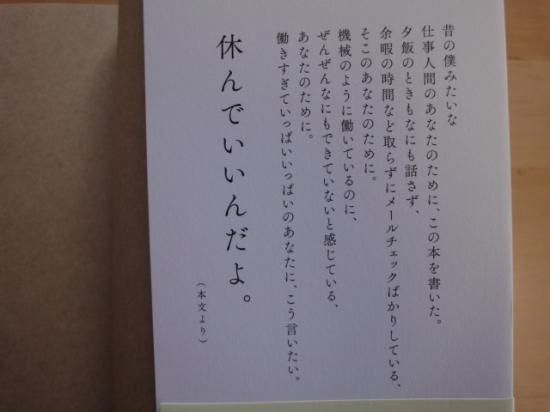 昔の僕みたいな
仕事人間のあなたのために、この本を書いた。
夕飯のときもなにも話さず、
余暇の時間など取らずにメールチェックばかりしている、
そこのあなたのために。
機械のように働いているのに、
ぜんぜんなにもできていないと感じている、
あなたのために。
働きすぎていっぱいいっぱいのあなたに、こう言いたい。
休んでいいんだよ。
（本文より）